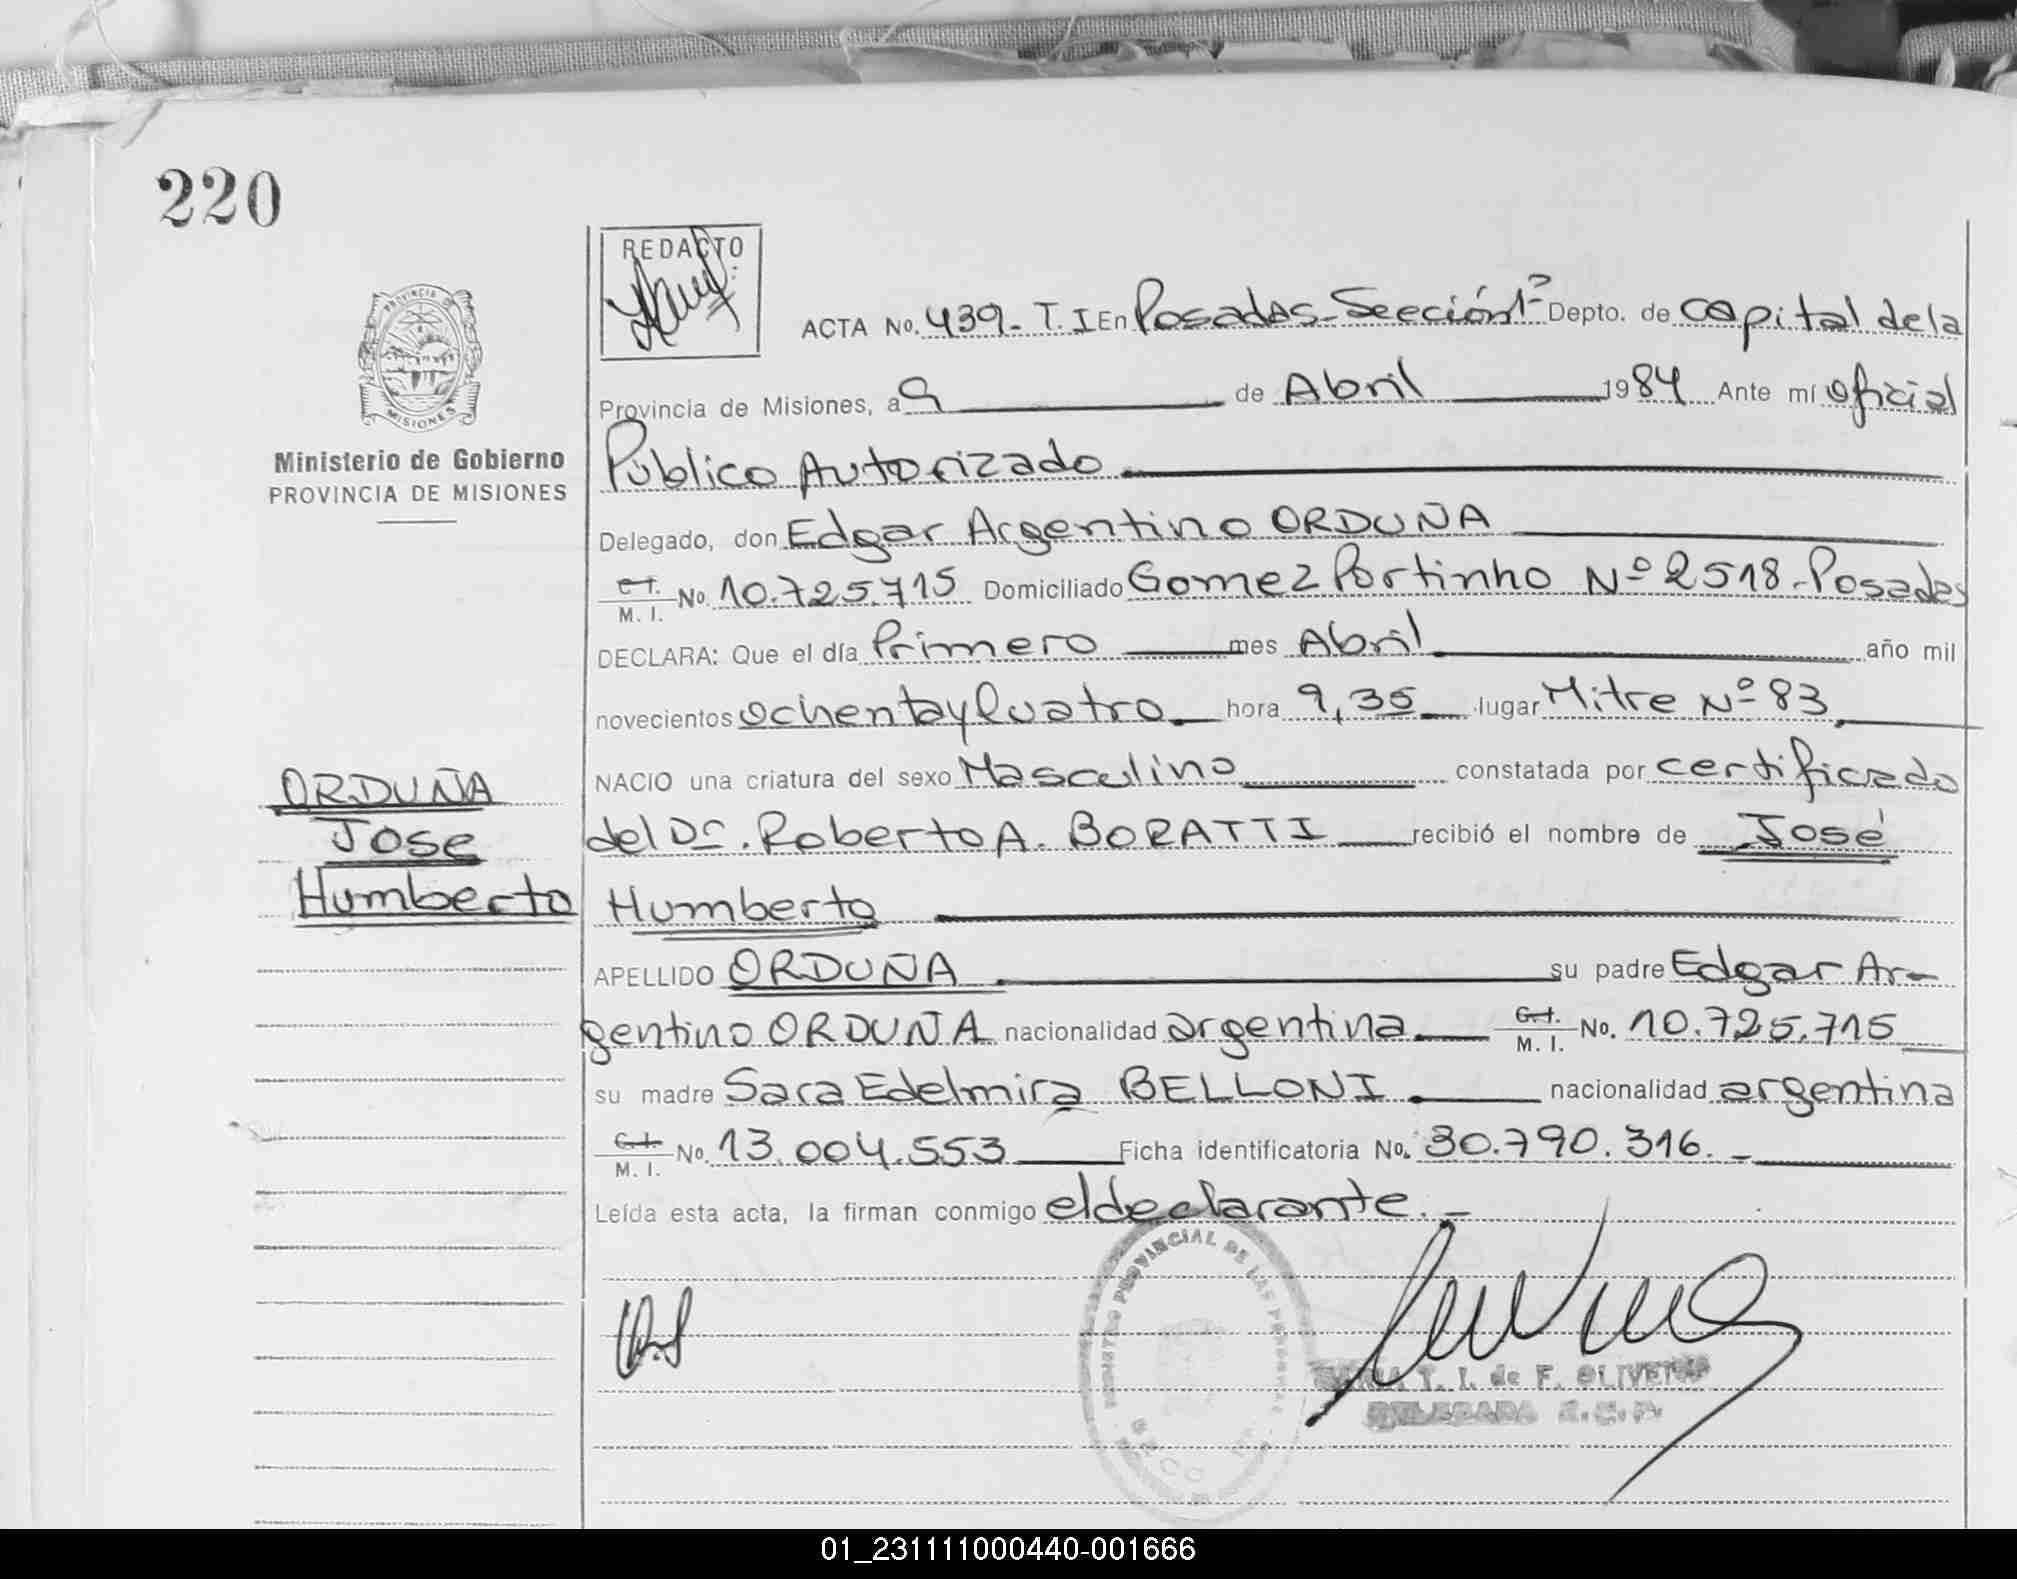 220
PROVINCIA DE
MISIONES
Ministerio de Gobierno
PROVINCIA DE MISIONES
REDACTO
ACTA No. 439- T. I En Posadas-Sección 1ª Depto. de Capital de la
Provincia de Misiones, a 9 de Abril 1984 Ante mí Oficial
Público Autorizado
Delegado, don Edgar Argentino ORDUÑA
C.I. M. I. No. 10.725.715 Domiciliado Gomez Portinho Nº 2518-Posadas
DECLARA: Que el día Primero mes Abril año mil
novecientos ochenta y Cuatro hora 9,35 lugar Mitre Nº 83
NACIO una criatura del sexo Masculino constatada por certificado
del Dr. Roberto A. BORATTI recibió el nombre de José
Humberto
APELLIDO ORDUÑA su padre Edgar Ar-
gentino ORDUÑA nacionalidad argentina C.I. M. I. No. 10.725.715
su madre Sara Edelmira BELLONI nacionalidad argentina
C.I. M. I. No. 13.004.553 Ficha identificatoria No. 30.790.316.-
Leída esta acta, la firman conmigo el declarante.-
ORDUÑA
Jose
Humberto
REGISTRO PROVINCIAL DE LAS PERSONAS
T. I. de F. OLIVEIRA
DELEGADA R.C.P.
01_231111000440-001666